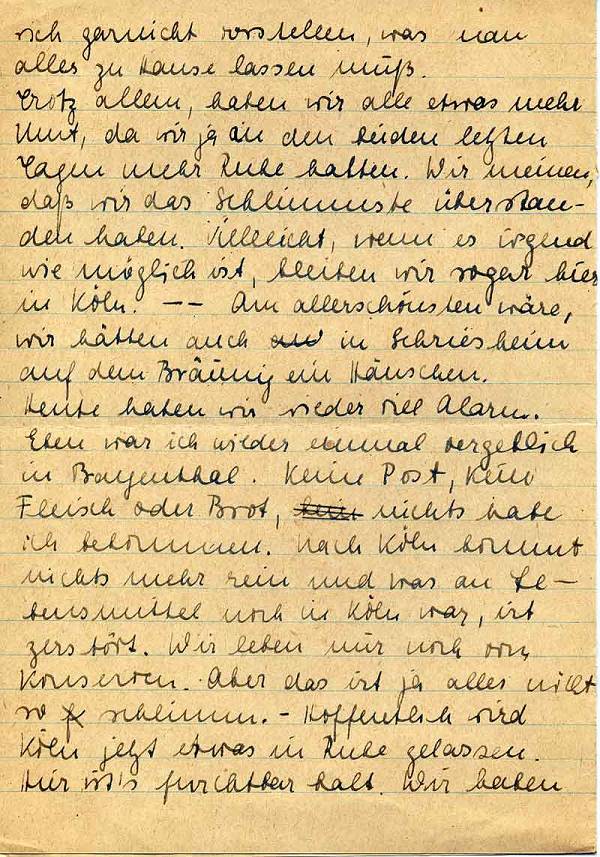 sich garnicht vorstellen, was man
alles zu Hause lassen muß.
Trotz allem, haben wir alle etwas mehr
Mut, da wir ja in den beiden letzten
Tagen mehr Ruhe hatten. Wir meinen,
daß wir das Schlimmste überstan-
den haben. Villeicht, wenn es irgend
wie möglich ist, bleiben wir sogar hier
in Köln. -- Am allerschönsten wäre,
wir hätten auch in Schriesheim
auf dem Bräunig ein Häuschen.
Heute haben wir wieder viel Alarm.
Eben war ich wieder einmal vergeblich
in Bayenthal. Keine Post, kein
Fleisch oder Brot, nichts habe
ich bekommen. Nach Köln kommt
nichts mehr rein und was an Le-
bensmittel noch in Köln war, ist
zerstört. Wir leben nur noch von
Konserven. Aber das ist ja alles nicht
so schlimm. - Hoffentlich wird
Köln jetzt etwas in Ruhe gelassen.
Hier ist's furchtbar kalt. Wir haben